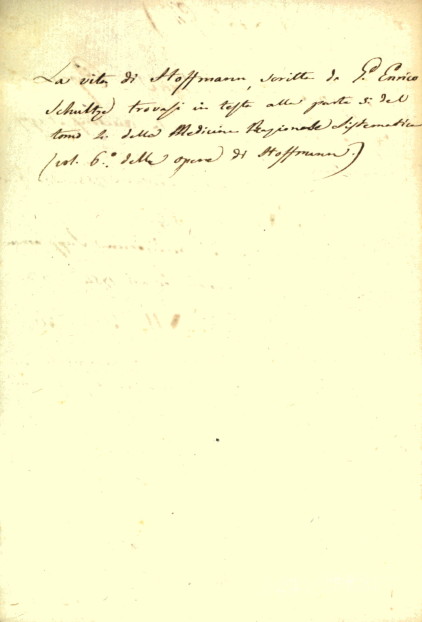 La vita di Hoffmann, scritta da G.d Enrico
Schultze trovasi in testa alla parte 5. del
tomo 4. della Medicina Razionale Sistematica
(vol. 6.o delle opere di Hoffmann.)